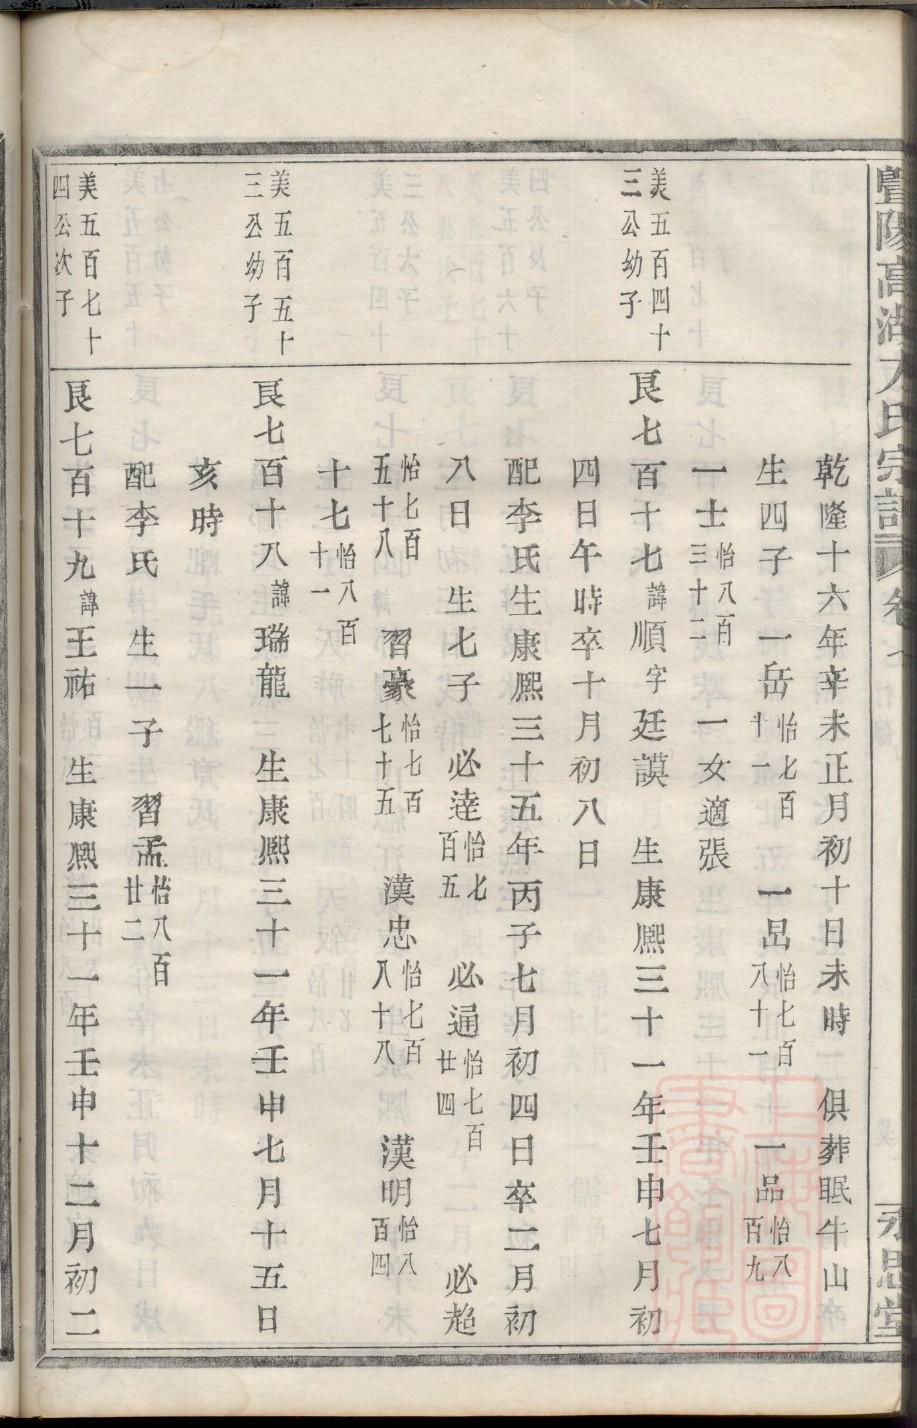 暨陽高湖方氏宗譜 卷七 永思堂
乾隆十六年辛未正月初十日未時 俱葬眠牛山
生四子 一岳怡七百十一 一呂怡七百八十一 一品怡八百九
一士怡八百三十二 一女適張
美五百四十三公幼子
艮七百十七諱順字廷謨 生康熙三十一年壬申七月初
四日午時卒十月初八日
配李氏生康熙三十五年丙子七月初四日卒二月初
八日 生七子 必達怡七百五 必通怡七百廿四 必趨
怡七百五十八 習豪怡七百七十五 漢忠怡七百八十八 漢明怡八百四
十七怡八百十一
美五百五十三公幼子
艮七百十八諱瑞龍 生康熙三十一年壬申七月十五日
亥時
配李氏 生一子 習孟怡八百廿二
美五百七十四公次子
艮七百十九諱王祐 生康熙三十一年壬申十二月初二